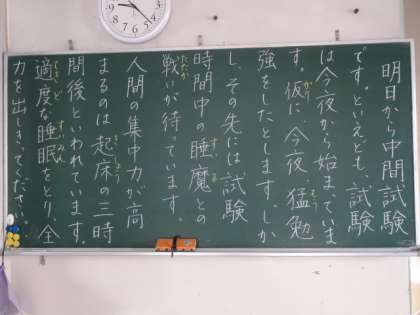 明日から中間試験
です。といえども、試験
は今夜から始まっていま
す。仮に、今夜、猛勉
強をしたとします。しか
し、その先には試験
時間中の睡魔との
戦いが待っています。
人間の集中力が高
まるのは起床の三時
間後といわれています。
適度な睡眠をとり、全
力を出しきってください。